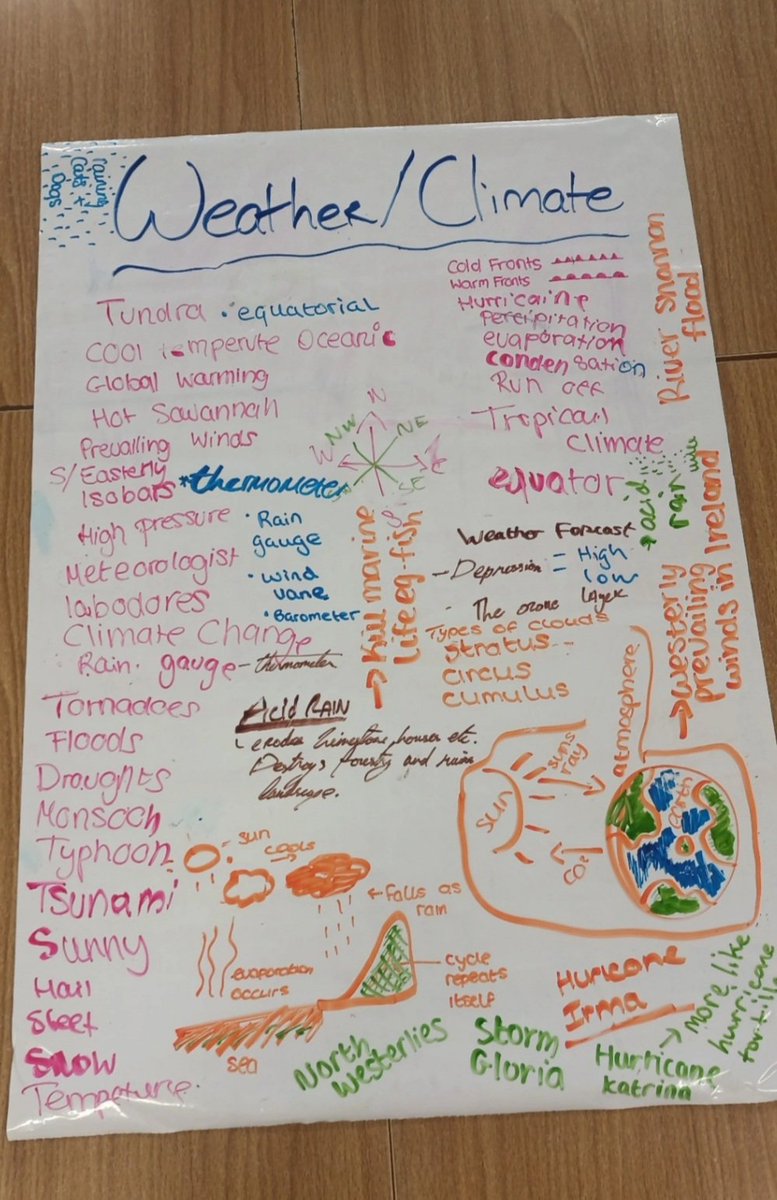 raining
Cats +
Dogs
Weather/Climate
Tundra • equatorial
Cool temperute Oceanic
Global warming
Hot Savannah
Prevailing winds
S/Easterly
Isobars
*thermometer
High pressure
Meteorologist
labodores
Climate Change
Rain gauge - thermometer
• Rain
gauge
• wind
vane
• Barometer
Tornadoes
Floods
Draughts
Monsoon
Typhoon
Tsunami
Sunny
Hail
Sleet
Snow
Tempeturse
N
NW
NE
W
E
SE
Cold Fronts
Warm Fronts
Hurricaine
Percipitation
evaporation
condensation
Run off
Tropical
Climate
equator
River Shannon
flood
→ acid
rain
→ Westerly
prevailing
winds in Ireland
→ Kill marine
life eg. fish
Weather Forecast
- Depression = High
= low
- The ozone layer
Types of clouds
stratus
circus
cumulus
Acid RAIN
erodes limestone, houses etc.
Destroys forestry and
landscape.
sun
cools
← falls as
rain
evaporation
occurs
cycle
repeats
itself
sea
sun
suns
ray
CO2
atmosphere
earth
North
Westerlies
Storm
Gloria
Huricane
Irma
Hurricane
Katrina
→ more like
hurricane
tortilla